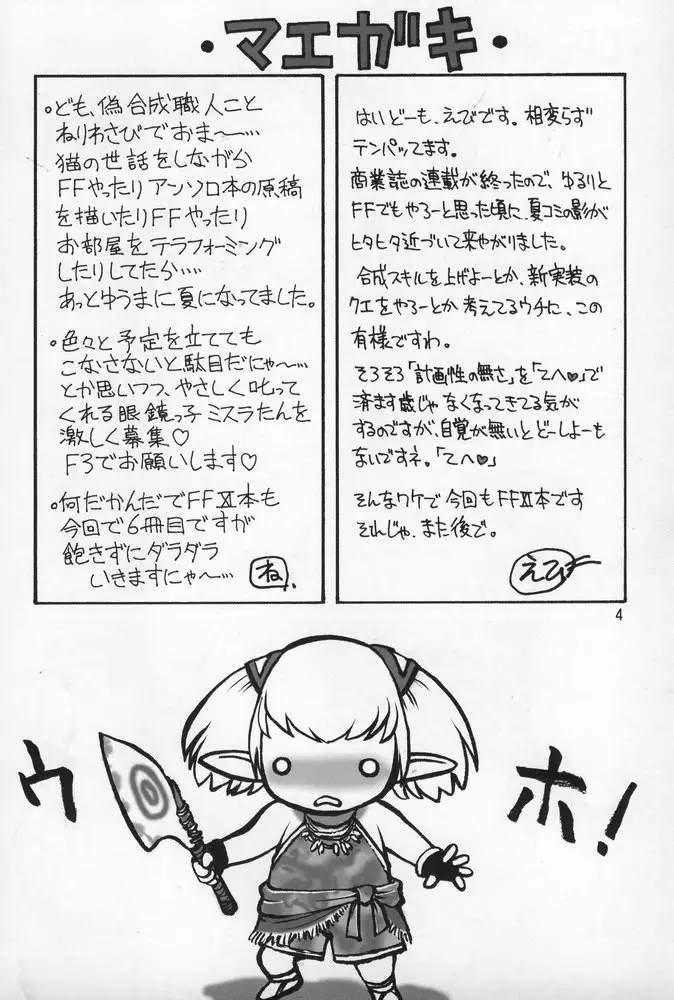 ・マエガキ・
はいどーも、えびです。相変らず
テンパッてます。
商業誌の連載が終ったので、ゆるりと
FFでもやろーと思った頃に、夏コミの影が
ヒタヒタ近づいて来やがりました。
合成スキルを上げよーとか、新実装の
クエをやろーとか考えてるウチに、この
有様ですわ。
そろそろ「計画性の無さ」を「てへ♥」で
済ます歳じゃなくなってきてる気が
するのですが、自覚が無いとどーしよーも
ないですネ。「てへ♥」
そんなワケで今回もFFⅪ本です
それじゃ、また後で。
えび
。ども、偽合成職人こと
ねりわさびでおま〜…
猫の世話をしながら
FFやったりアンソロ本の原稿
を描いたりFFやったり
お部屋をテラフォーミング
したりしてたら‥‥
あっとゆうまに夏になってました。
。色々と予定を立てても
こなさないと駄目だにゃ〜…
とか思いつつ、やさしく叱って
くれる眼鏡っ子ミスラたんを
激しく募集♡
F3でお願いします♡
。何だかんだでFFⅪ本も
今回で6冊目ですが
飽きずにダラダラ
いきますにゃ〜…
ね
4
ウホ!